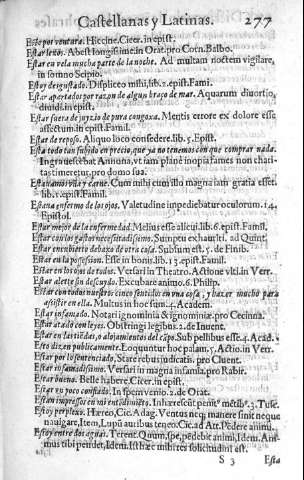 Castellanas y Latinas. 277
Este por ventura. Hiccine. Cicer. in epist.
Estar lexos. Abest longissime, in Orat. pro Corn. Balbo.
Estar en vela mucha parte de la noche. Ad multam noctem vigilare,
in somno Scipio.
Estoy desgustado. Displiceo mihi, lib. 2. epist. Fami.
Estar apartados por razon de algun braço de mar. Aquarum divortio,
dividi. in epist.
Estar fuera de juyzio de pura congoxa. Mentis errore ex dolore esse
affectum. in epist. Famil.
Estar de reposo. Aliquo loco consedere. lib. 5. Epist.
Està todo tan subido en precio, que ya no tenemos con que comprar nada.
Ingravescebat Annona, vt iam planè inopia fames non chari-
tas timeretur, pro domo sua.
Està uña y carne. Cum mihi cum illo magna iam gratia esset.
lib. 1. epist. Famil.
Estava enfermo de los ojos. Valetudine impediebatur oculorum. 14.
Epistol.
Estar mejor de la enfermedad. Melius esse alicui. lib. 6. epist. Famil.
Estar con los gastos necessitadissimo. Sumptu exhauriri. ad Quint.
Estar encubierto debaxo de otra cosa. Subsum. est. 5. de Finib.
Estar en la possession. Esse in bonis. lib. 13. epist. Famil.
Estar en los ojos de todos. Versari in Theatro. Actione vlt. in Verr.
Estar alerte sin descuydo. Excubare animo. 6. Philip.
Estar con todos nuestros cinco sentidos en vna cosa, y hazer mucho para
assistir en ella. Multus in hoc sum. 4. Academ.
Estar infamado. Notari ignominia & ignominiæ. pro Cecinna.
Estar atado con leyes. Obstringi legibus. 2. de Invent.
Estar en las tiendas, o alojamientos del campo. Sub pellibus esse. 4. Acad.
Esto dizen publicamente. Loquuntur hoc palam. 5. Actio. in Verr.
Estar por lo sentenciado. Stare rebus iudicatis. pro Cluent.
Estar infamadissimo. Versari in magna infamia. pro Rabir.
Estar bueno. Belle habere. Cicer. in epist.
Estar un poco confiado. In spem venio. 2. de Orat.
Estan impressos en mi entendimiẽto. Inhærescũt penitꝰ mẽtibꝰ. 3. Tusc.
Estoy perplexo. Hæreo, Cic. Adag. Ventus neq; manere sinit neque
navigare, Item, Lupũ auribus teneo. Cic. ad Att. Pedere animi.
Estoy entre dos aguas. Terent. Quum, spe, pedebit animi, Idem. Ani-
mus tibi pendet, Idem. Isthæc mihi res solicitudini est.
S 3 Esta